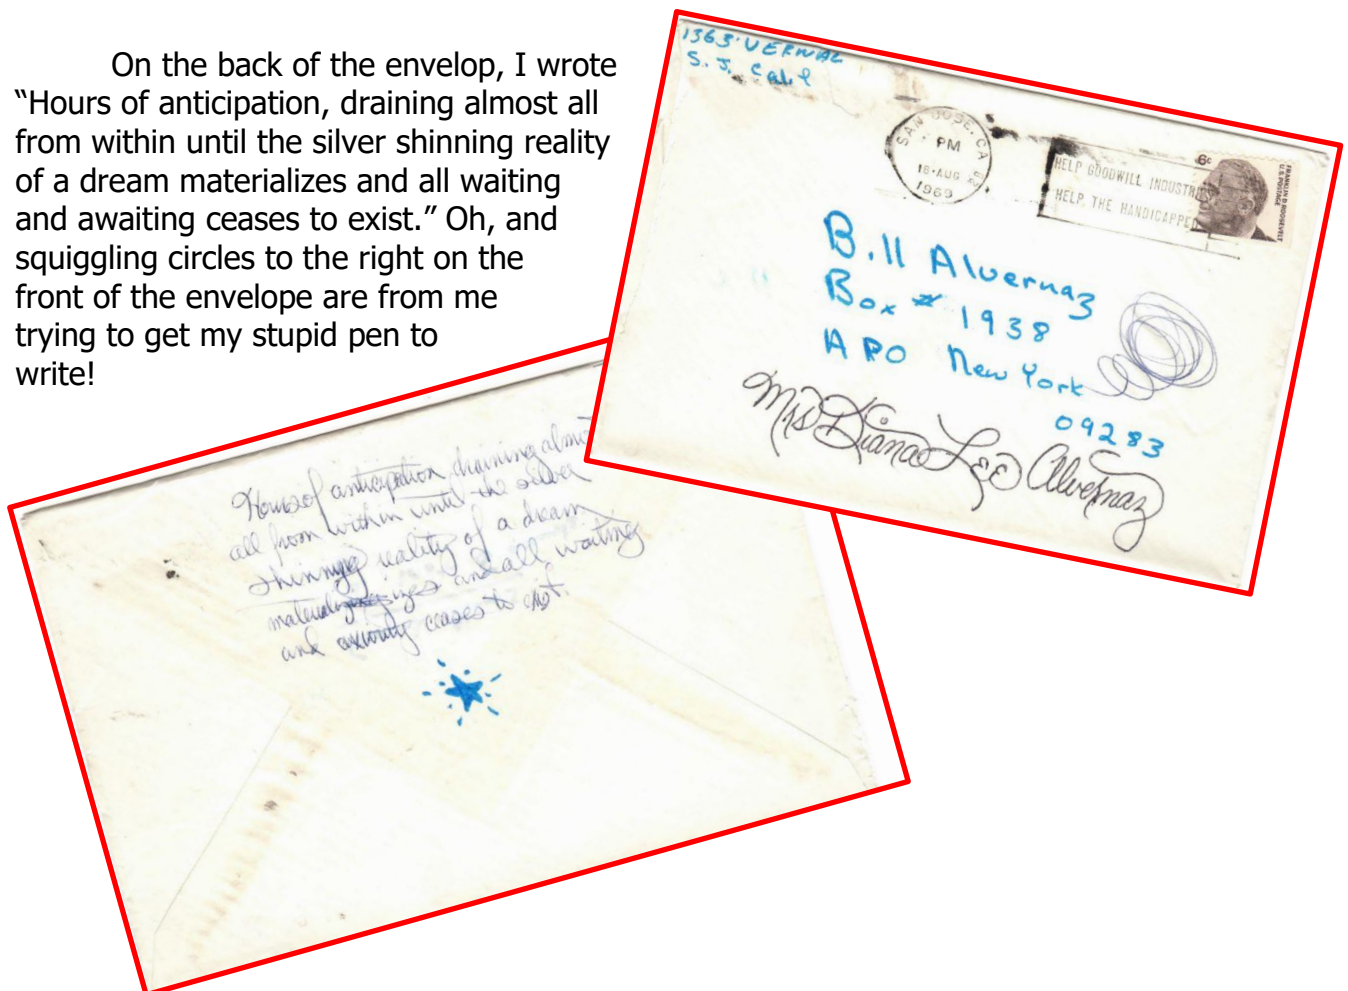 On the back of the envelop, I wrote
“Hours of anticipation, draining almost all
from within until the silver shinning reality
of a dream materializes and all waiting
and awaiting ceases to exist.” Oh, and
squiggling circles to the right on the
front of the envelope are from me
trying to get my stupid pen to
write!
1363 VERNAL
S. J. Calif
SAN JOSE, CA
PM
18 AUG
1969
HELP GOODWILL INDUSTRIES
HELP THE HANDICAPPED
6¢
FRANKLIN D. ROOSEVELT
U.S. POSTAGE
Bill Alvernaz
Box # 1938
APO New York
09283
Mrs Diana Lee Alvernaz
Hours of anticipation, draining almost
all from within until the silver
shinning reality of a dream
izes and all waiting
and ceases to exist.